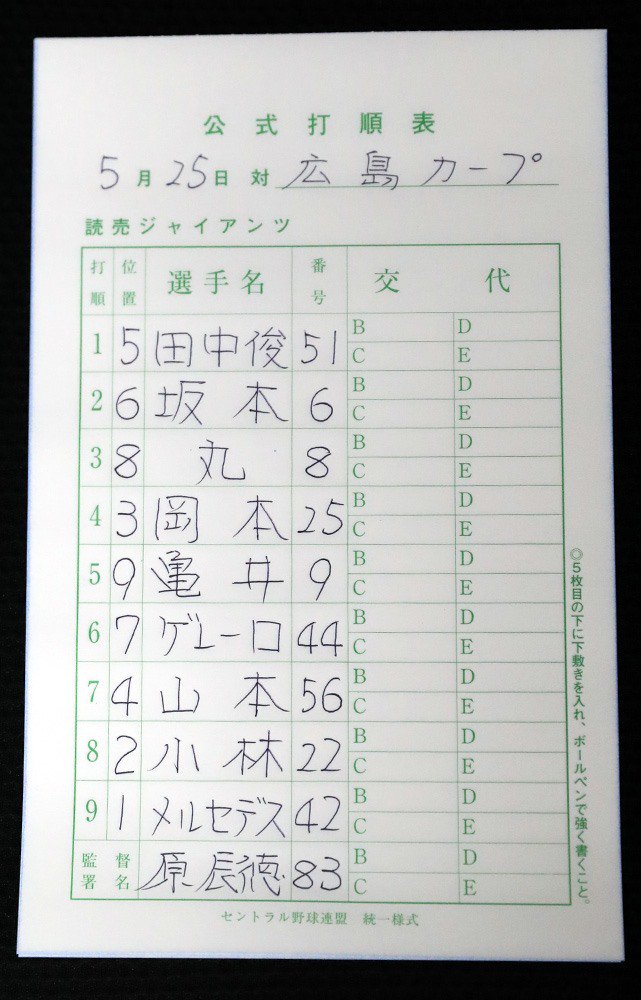 公式打順表
5月25日 対 広島カープ
読売ジャイアンツ
打順 位置 選手名 番号 交代
1 5 田中俊 51 B D
C E
2 6 坂本 6 B D
C E
3 8 丸 8 B D
C E
4 3 岡本 25 B D
C E
5 9 亀井 9 B D
C E
6 7 ゲレーロ 44 B D
C E
7 4 山本 56 B D
C E
8 2 小林 22 B D
C E
9 1 メルセデス 42 B D
C E
監督署名 原辰徳 83 B D
C E
◎5枚目の下に下敷きを入れ、ボールペンで強く書くこと。
セントラル野球連盟 統一様式